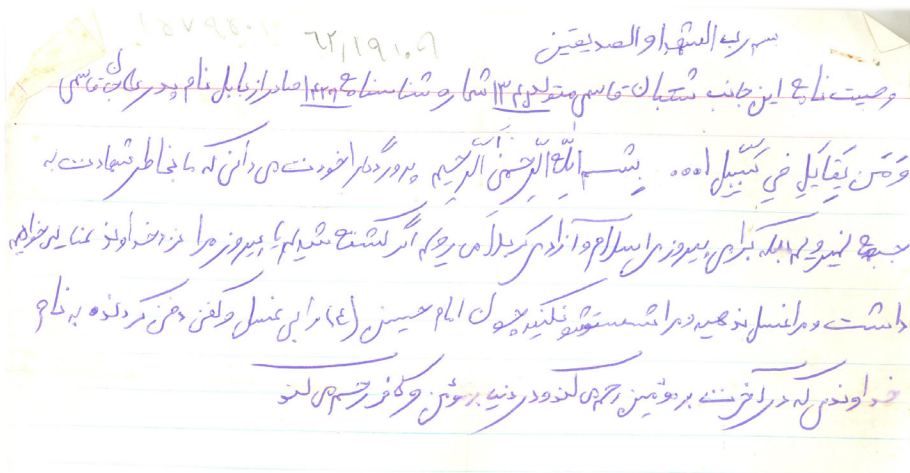 ۶۲/۱۹/۰۶
بسم رب الشهدا و الصدیقین
وصیت نامه این جانب شعبان قاسمی متولد ۱۳۴۳ شماره شناسنامه ۱۴۲۹ صادر از بابل نام پدر قاسمی
وَمَن یُقاتِلِ فِی سَبیِلِ ا... بِسْمِ اللّهِ الرَّحمنِ الرَّحیمِ پروردگارا خودت می دانی که ما بخاطر شهادت به
جبهه نیرویم بلکه برای پیروزی اسلام و آزادی کربلا می رویم اگر کشته شدیم یا پیروز مرا نزد خداوند خواهیم
داشت و مرا غسل ندهید و مرا شستشو نکنید چون امام حسین (ع) را بی غسل و کفن دفن کردند به نام
خداوندی که در آخرت بر مومنین رحم می کند و در دنیا بر مومن و کافر رحم می کند